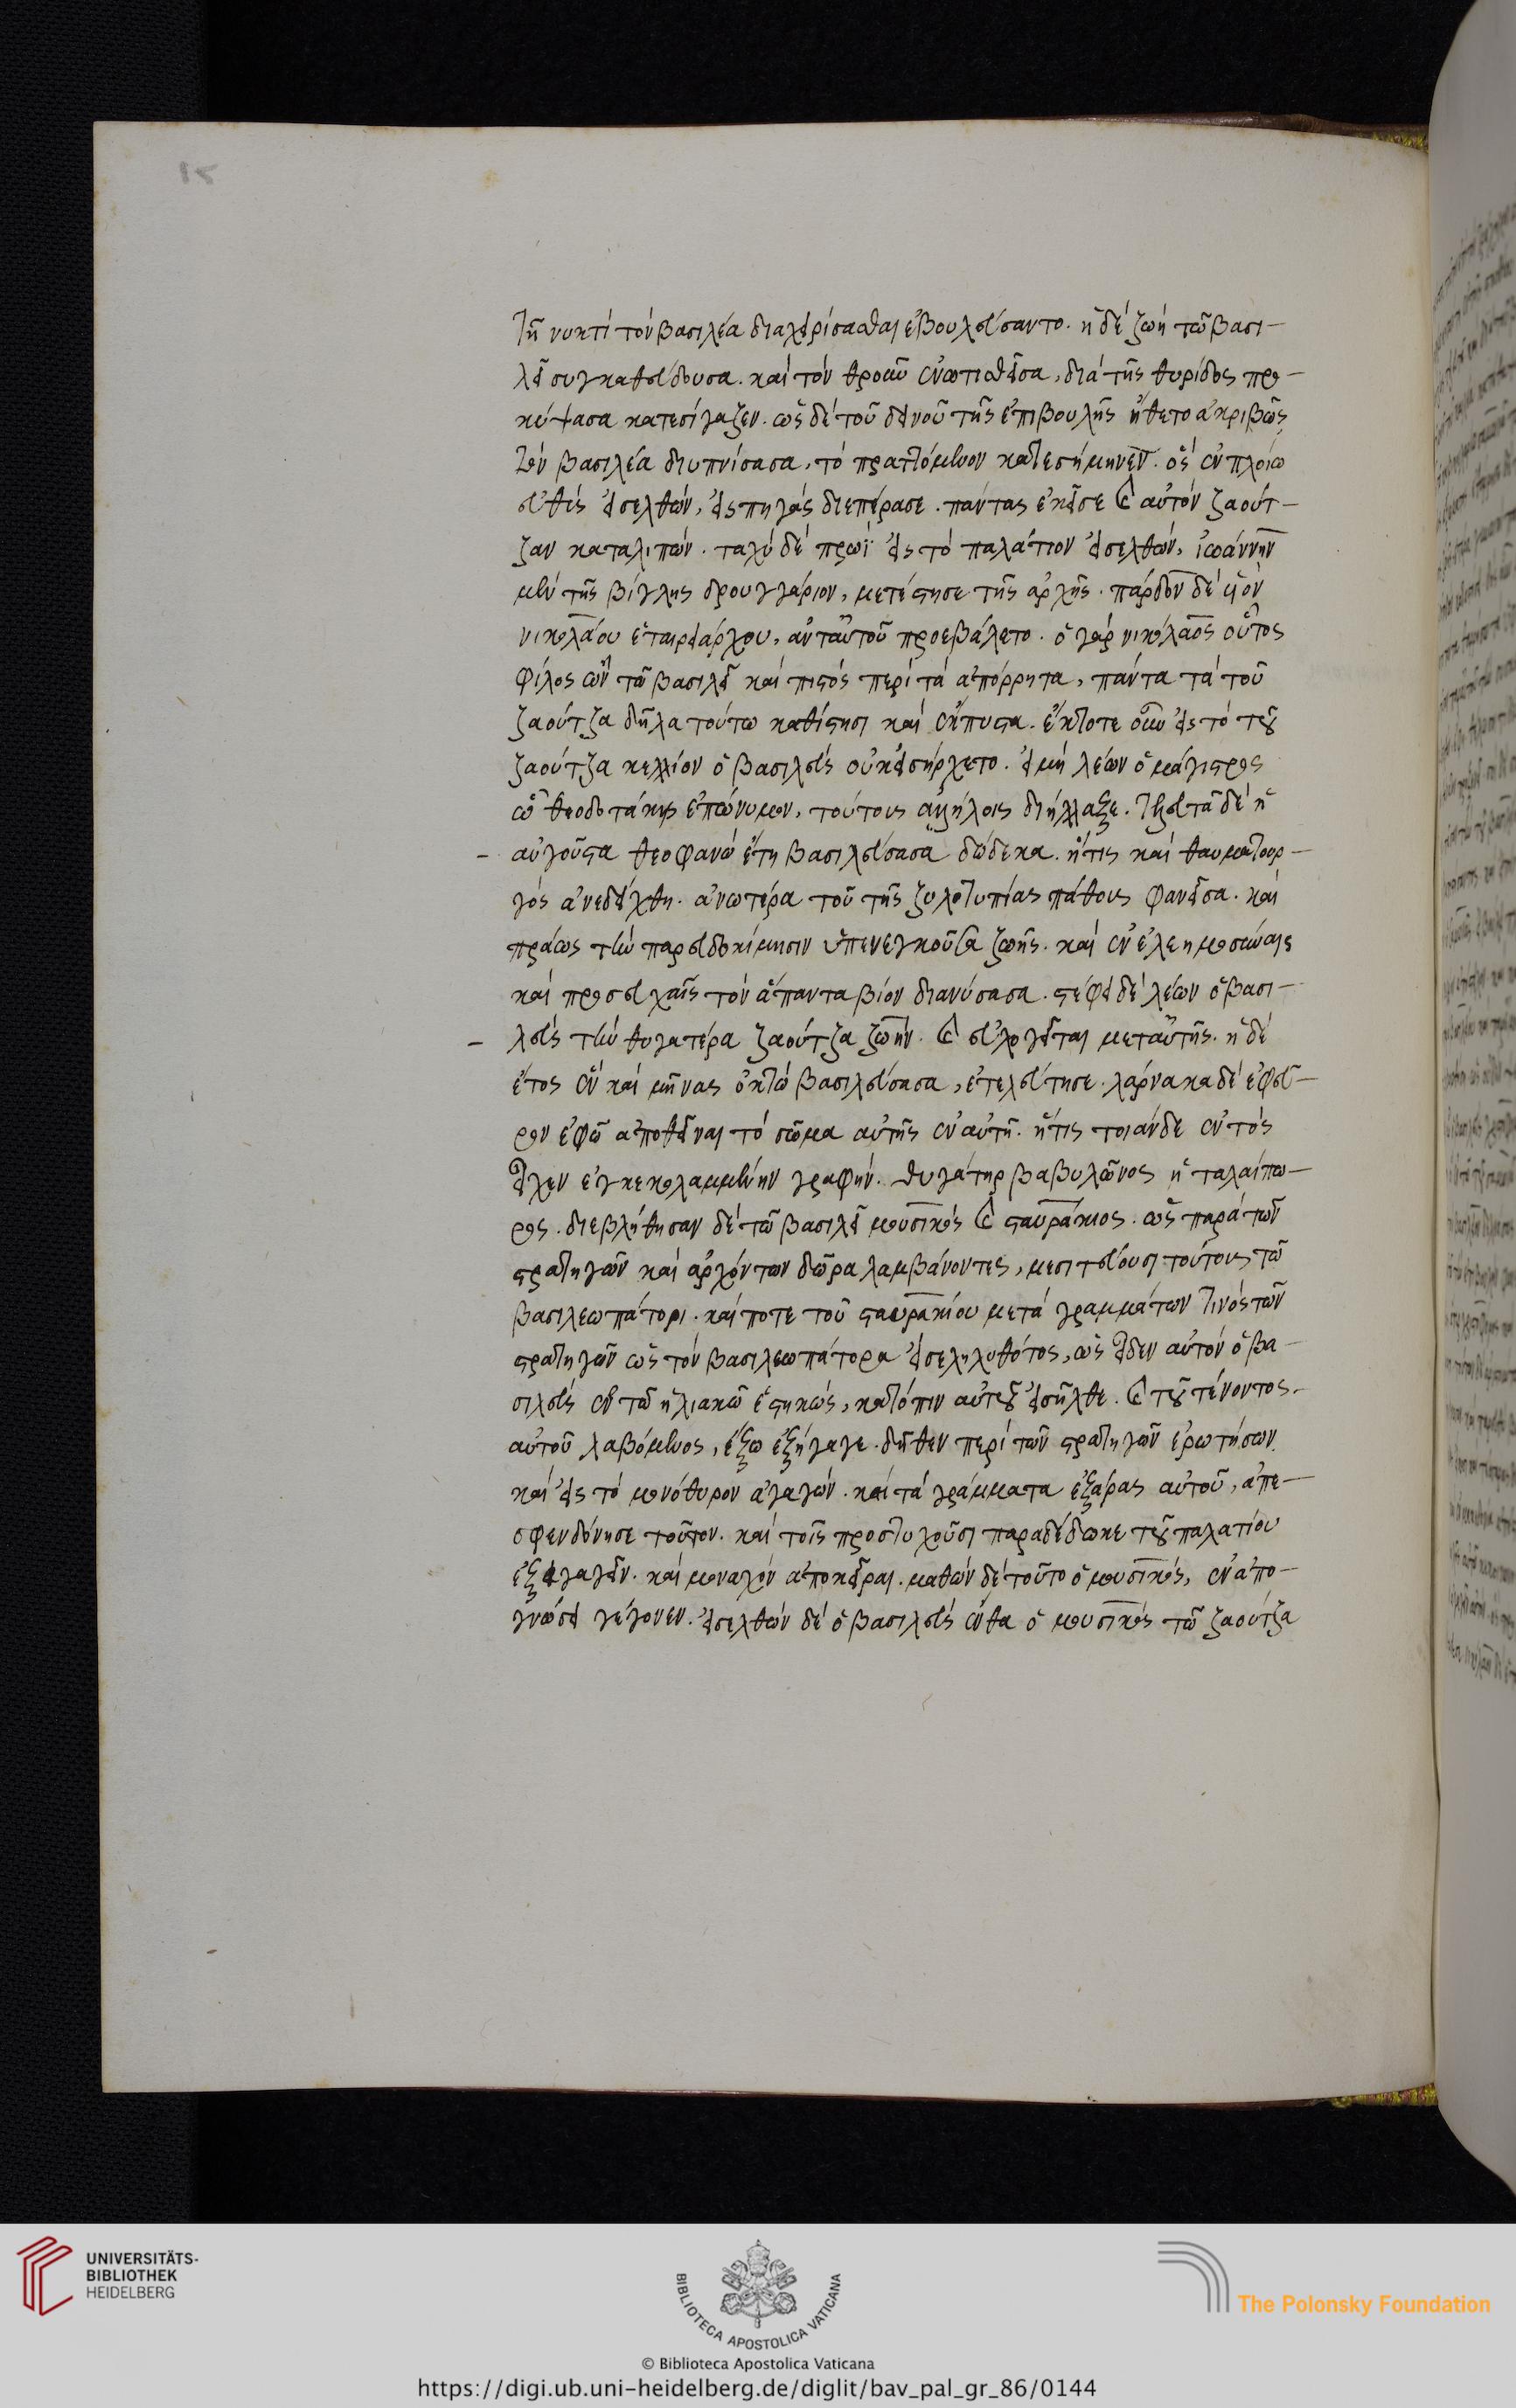 τῆ νυκτὶ τὸν βασιλέα διαχειρίσασθαι ἐβουλεύσαντο. ἡ δὲ ζωὴ τῶ βασι-
λεῖ συγκαθεύδουσα. καὶ τὸν θροῦν ἐνωτισθεῖσα, διὰ τῆς θυρίδος προ-
κύψασα κατεσίγαζεν. ὡς δὲ τοῦ δεινοῦ τῆς ἐπιβουλῆς ἤσθετο ἀκριβῶς
τὸν βασιλέα διυπνίσασα, τὸ πραττόμενον κατεσήμηνεν. ὃς ἐν πλοίω
εὐθὺς εἰσελθὼν, εἰς πηγὰς διεπέρασε. πάντας ἐκεῖσε καὶ αὐτὸν ζαούτ-
ζαν καταλιπών. ταχὺ δὲ πρωῒ εἰς τὸ παλάτιον εἰσελθὼν, ἰωάννην
μὲν τῆς βίγλης δρουγγάριον, μετέστησε τῆς ἀρχῆς. πάρδον δὲ υἱὸν
νικολάου ἑταιρειάρχου, ἀντ' αὐτοῦ προεβάλετο. ὁ γὰρ νικόλαος οὗτος
φίλος ὢν τῶ βασιλεῖ καὶ πιστὸς περὶ τὰ ἀπόρρητα, πάντα τὰ τοῦ
ζαούτζα δῆλα τούτω καθίστησι καὶ ἔκπυστα. ἔκτοτε οὖν εἰς τὸ τοῦ
ζαούτζα κελλίον ὁ βασιλεὺς οὐκ εἰσήρχετο. εἰ μὴ λέων ὁ μάγιστρος
ὧ θεοδοτάκης ἐπώνυμον, τούτους ἀλλήλοις διήλλαξε. τελευτᾶ δὲ ἡ
αὐγοῦστα θεοφανὼ ἔτη βασιλεύσασα δώδεκα. ἥτις καὶ θαυματουρ-
γὸς ἀνεδείχθη. ἀνωτέρα τοῦ τῆς ζηλοτυπίας πάθους φανεῖσα. καὶ
πράως τὴν παρευδοκίμησιν ὑπενεγκοῦσα ζωῆς. καὶ ἐν ἐλεημοσύναις
καὶ προσευχαῖς τὸν ἅπαντα βίον διανύσασα. στέφει δὲ λέων ὁ βασι-
λεὺς τὴν θυγατέρα ζαούτζα ζωὴν. καὶ εὐλογεῖται μετ' αὐτῆς. ἡ δὲ
ἔτος ἓν καὶ μῆνας ὀκτὼ βασιλεύσασα, ἐτελεύτησε. λάρνακα δὲ ἐφεῦ-
ρον ἐφ' ῶ ἀποθεῖναι τὸ σῶμα αὐτῆς ἐν αὐτῆ. ἥτις τοιάνδε ἐντὸς
εἶχεν ἐγκεκολαμμένην γραφήν. θυγάτηρ βαβυλῶνος ἡ ταλαίπω-
ρος. διεβλήθησαν δὲ τῶ βασιλεῖ μουσικὸς καὶ σταυράκιος. ὡς παρὰ τῶν
στρατηγῶν καὶ ἀρχόντων δῶρα λαμβάνοντες, μεσιτεύουσι τούτους τῶ
βασιλεωπάτορι. καί ποτε τοῦ σταυρακίου μετὰ γραμμάτων τινὸς τῶν
στρατηγῶν ὡς τὸν βασιλεωπάτορα εἰσεληλυθότος, ὡς εἶδεν αὐτὸν ὁ βα-
σιλεὺς ἐν τῶ ἡλιακῶ ἑστηκώς, κατόπιν αὐτοῦ εἰσῆλθε. καὶ τοῦ τένοντος
αὐτοῦ λαβόμενος, ἔξω ἐξήγαγε. δῆθεν περὶ τῶν στρατηγῶν ἐρωτήσων
καὶ εἰς τὸ μονόθυρον ἀγαγὼν. καὶ τὰ γράμματα ἐξάρας αὐτοῦ, ἀπε-
σφενδόνησε τοῦτον. καὶ τοῖς προστυχοῦσι παραδέδωκε τοῦ παλατίου
ἐξαγαγεῖν. καὶ μοναχὸν ἀποκεῖραι. μαθὼν δὲ τοῦτο ὁ μουσικὸς, ἐν ἀπο-
γνώσει γέγονεν. εἰσελθὼν δὲ ὁ βασιλεὺς ἔνθα ὁ μουσικὸς τῶ ζαούτζα
UNIVERSITÄTS-
BIBLIOTHEK
HEIDELBERG
BIBLIOTECA APOSTOLICA VATICANA
The Polonsky Foundation
© Biblioteca Apostolica Vaticana
https://digi.ub.uni-heidelberg.de/diglit/bav_pal_gr_86/0144